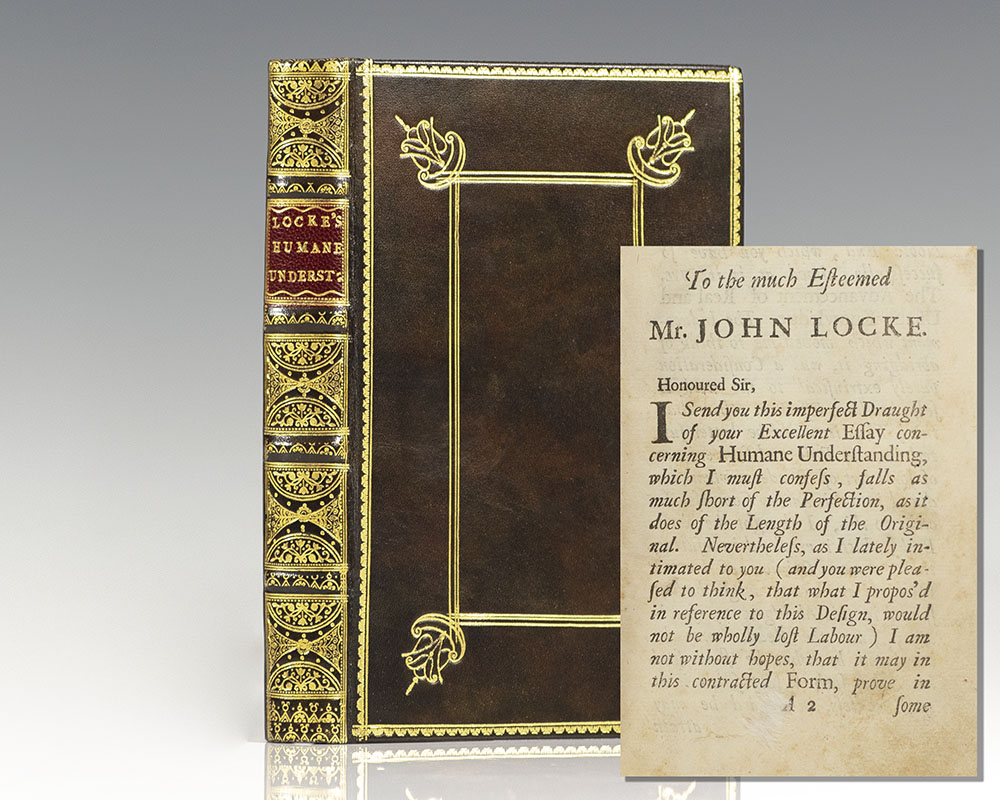 LOCKE'S
HUMANE
UNDERST:
To the much Eſteemed
Mr. JOHN LOCKE.
Honoured Sir,
I Send you this imperfect Draught
of your Excellent Eſſay con-
cerning Humane Underſtanding,
which I muſt confeſs, falls as
much ſhort of the Perfection, as it
does of the Length of the Origi-
nal. Nevertheleſs, as I lately in-
timated to you (and you were plea-
ſed to think, that what I propos'd
in reference to this Deſign, would
not be wholly loſt Labour) I am
not without hopes, that it may in
this contracted Form, prove in
A 2 ſome